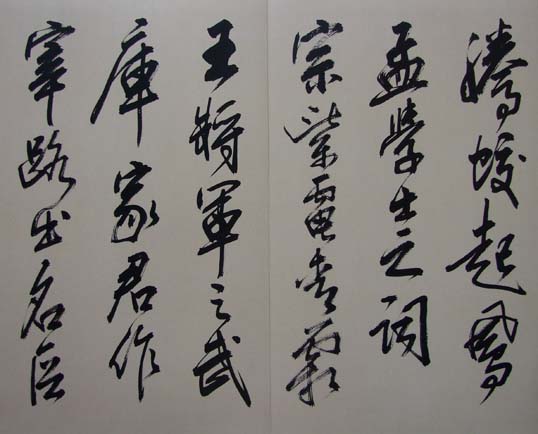 騰蛟起鳳
孟學士之詞
宗紫電青霜
王將軍之武
庫家君作
宰路出名區